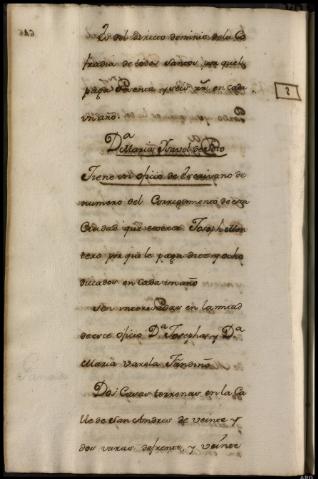 Es del directo dominio de la Co
fradia de todos Santos, por que le
paga treinta y seis rr.s en cada
un año.
D.a Maria Ysavel de Soto
Tiene un oficio de Escrivano de
numero del Corregimiento de esta
Ciudad que exerce Joseph Mon
tero por que le paga diez y ocho
ducados en cada un año
Son interesadas en la mitad
de este oficio D.a Josepha, y D.a
Maria Varela Fandiño
Dos Casas terrenas en la Ca
lle de San Andres de veinte y
dos varas de frente, y veinte